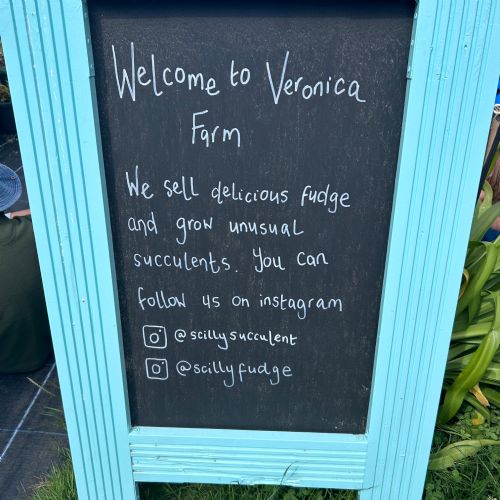 Welcome to Veronica
Farm
We sell delicious fudge
and grow unusual
succulents. You can
follow us on instagram
@scillysucculent
@scillyfudge